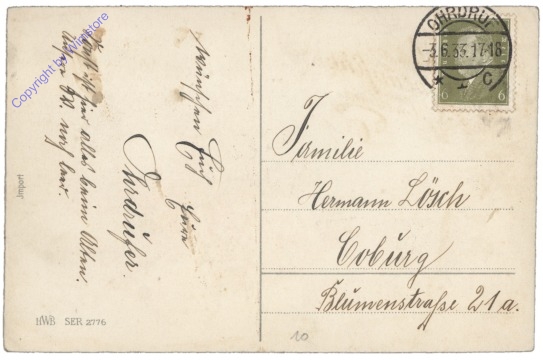 wünschen Euch
Eure
Ohrdrufer.
Sonst ist hier alles beim Alten.
noch leer
Import
HWB SER 2776
OHRDRUF
3.6.33.17-18
* 1 C
6 6
Familie
Hermann Lösch
Coburg
Blumenstraße 21 a.
10
Copyright by